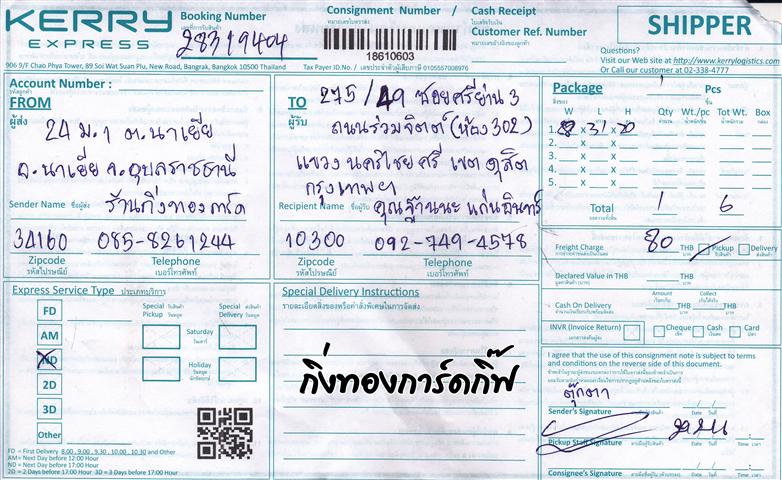 KERRY
EXPRESS
Booking Number
เลขที่การรับสินค้า
28319404
Consignment Number /
หมายเลขใบตราส่ง
18610603
Cash Receipt
ใบเสร็จรับเงิน
Customer Ref. Number
หมายเลขอ้างอิงของลูกค้า
SHIPPER
906 9/F Chao Phya Tower, 89 Soi Wat Suan Plu, New Road, Bangrak, Bangkok 10500 Thailand
Tax Payer ID.No. / เลขประจำตัวผู้เสียภาษี 0105557008976
Questions?
Visit our Web site at http://www.kerrylogistics.com
Or Call our customer at 02-338-4777
Account Number :
รหัสลูกค้า
FROM
ผู้ส่ง
24 ม.1 ต.นาเยีย
อ.นาเยีย จ.อุบลราชธานี
Sender Name ชื่อผู้ส่ง ร้านกิ่งทองการ์ด
34160 085-8261244
Zipcode Telephone
รหัสไปรษณีย์ เบอร์โทรศัพท์
TO
ผู้รับ
275/49 ซอยศรีย่าน 3
ถนนร่วมจิตต์ (ห้อง 302)
แขวง นครไชยศรี เขต ดุสิต
กรุงเทพฯ
Recipient Name ชื่อผู้รับ
10300 092-749-4578
Zipcode Telephone
รหัสไปรษณีย์ เบอร์โทรศัพท์
Package 1 Pcs
สิ่งของ ชิ้น
W L H Qty Wt./pc Tot Wt. Box
1. x 31 x 20
2. x x
3. x x
4. x x
5. x x
Total 1 6
Freight Charge 80 THB Pickup Delivery
Declared Value in THB
Amount Collect
Cash On Delivery THB THB
INVR (Invoice Return) Cheque Cash Card
Express Service Type ประเภทบริการ
Special Pickup
Special Delivery
FD
AM
ND
2D
3D
Other
Saturday
วันเสาร์
Holiday
วันหยุด
นักขัตฤกษ์
FD = First Delivery 8.00 , 9.00 , 9.30 , 10.00 , 10.30 and Other
AM = Next Day before 12:00 Hour
ND = Next Day before 17:00 Hour
2D = 2 Days before 17:00 Hour 3D = 3 Days before 17:00 Hour
Special Delivery Instructions
รายละเอียดสิ่งของหรือคำสั่งพิเศษในการจัดส่ง
กิ่งทองการ์ดกิ๊ฟ
I agree that the use of this consignment note is subject to terms
and conditions on the reverse side of this document.
ตุ๊กตา
Sender's Signature Date วันที่ Time เวลา
Pickup Staff Signature Date วันที่ Time เวลา
Consignee's Signature Date วันที่ Time เวลา